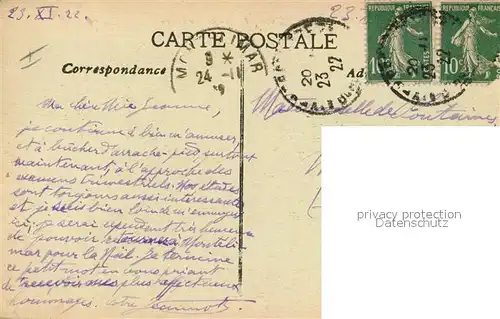 23. XI. 22.
CARTE POSTALE
Correspondance
Ma chère Mie Jeanne,
je continue à bien m'amuser
et à bûcher d'arrache-pied surtout
maintenant, à l'approche des
examens trimestriels. Nos études
sont toujours aussi intéressantes
et je suis bien loin de m'ennuyer
ici; je serai cependant très heureuse
de pouvoir à Montéli
mar pour la Noël. Je termine
ce petit mot en vous priant
de mes plus affectueux
hommages. Votre
Mademoiselle de
REPUBLIQUE FRANÇAISE
10
REPUBLIQUE FRANÇAISE
10
20
23-11
22
20
22
24
privacy protection
Datenschutz